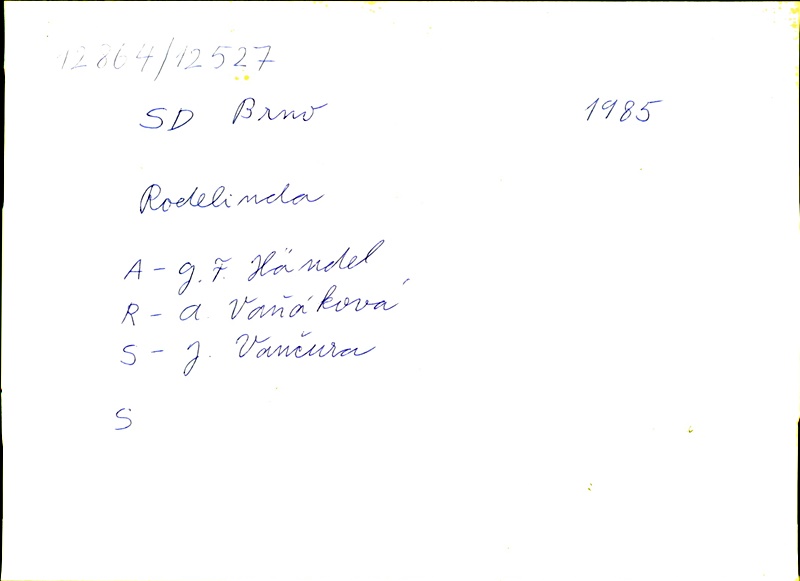 12864/12527
SD Brno 1985
Rodelinda
A - G. F. Händel
R - A. Vaňáková
S - J. Vančura
S